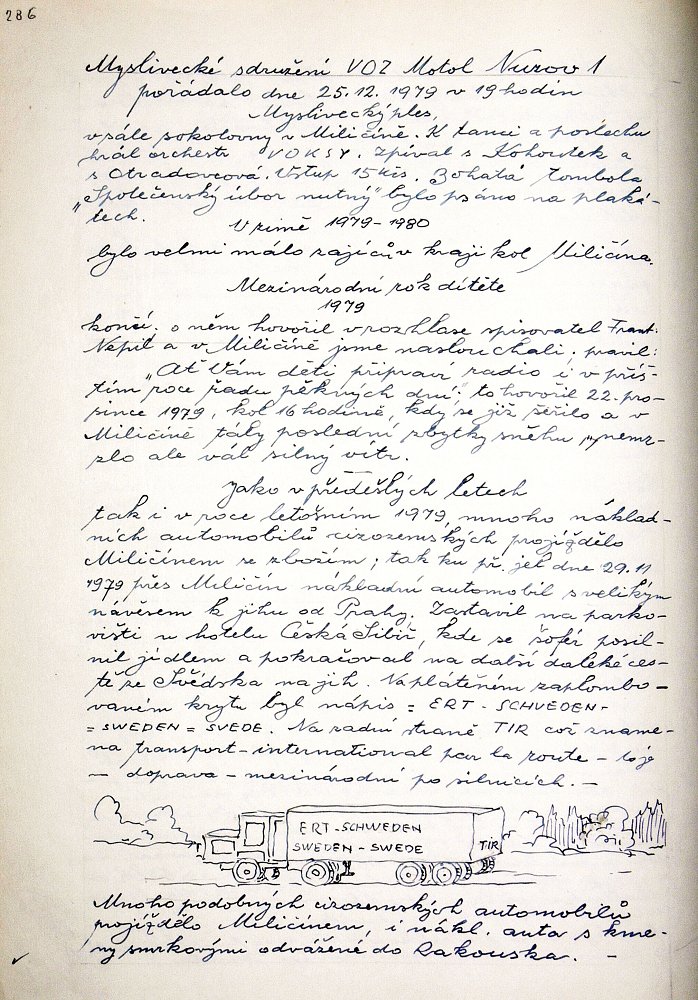 286
Myslivecké sdružení VOZ Motol Nuzov 1
pořádalo dne 25.12.1979 v 19 hodin
Myslivecký ples,
v sále sokolovny v Miličíně. K tanci a poslechu
hrál orchestr VOKSY. Zpíval s Kohoutek a
s Otradovcová. Vstup 15 kčs. Bohatá tombola
„Společenský úbor nutný" bylo psáno na plaká-
tech.
V zimě 1979-1980
bylo velmi málo zajíců v kraji kol Miličína.
Mezinárodní rok dítěte
1979
končí; o něm hovořil v rozhlase spisovatel Frant.
Nepil a v Miličíně jsme naslouchali; pravil:
„Ať Vám děti připraví radio i v příš-
tím roce řadu pěkných dní"; to hovořil 22. pro-
since 1979, kol 16 hodině, kdy se již šeřilo a v
Miličíně tály poslední zbytky sněhu, nemr-
zlo ale vál silný vítr.
Jako v předešlých letech
tak i v roce letošním 1979, mnoho náklad-
ních automobilů cizozemských projíždělo
Miličínem se zbožím; tak ku př. jel dne 29.11
1979 přes Miličín nákladní automobil s velikým
návěsem k jihu od Prahy. Zastavil na parko-
višti u hotelu Česká Sibiř, kde se šofér posil-
nil jídlem a pokračoval na další daleké ces-
tě ze Švédska na jih. Na plátěném zaplombo-
vaném krytu byl nápis = ERT - SCHVEDEN-
= SWEDEN = SVEDE. Na zadní straně TIR což zname-
na transport-international par la route - to je
- doprava - mezinárodní po silnicích. -
ERT-SCHWEDEN
SWEDEN-SWEDE
TIR
Mnoho podobných cizozemských automobilů
projíždělo Miličínem, i nákl. auta s kme-
ny smrkovými odvážené do Rakouska. -